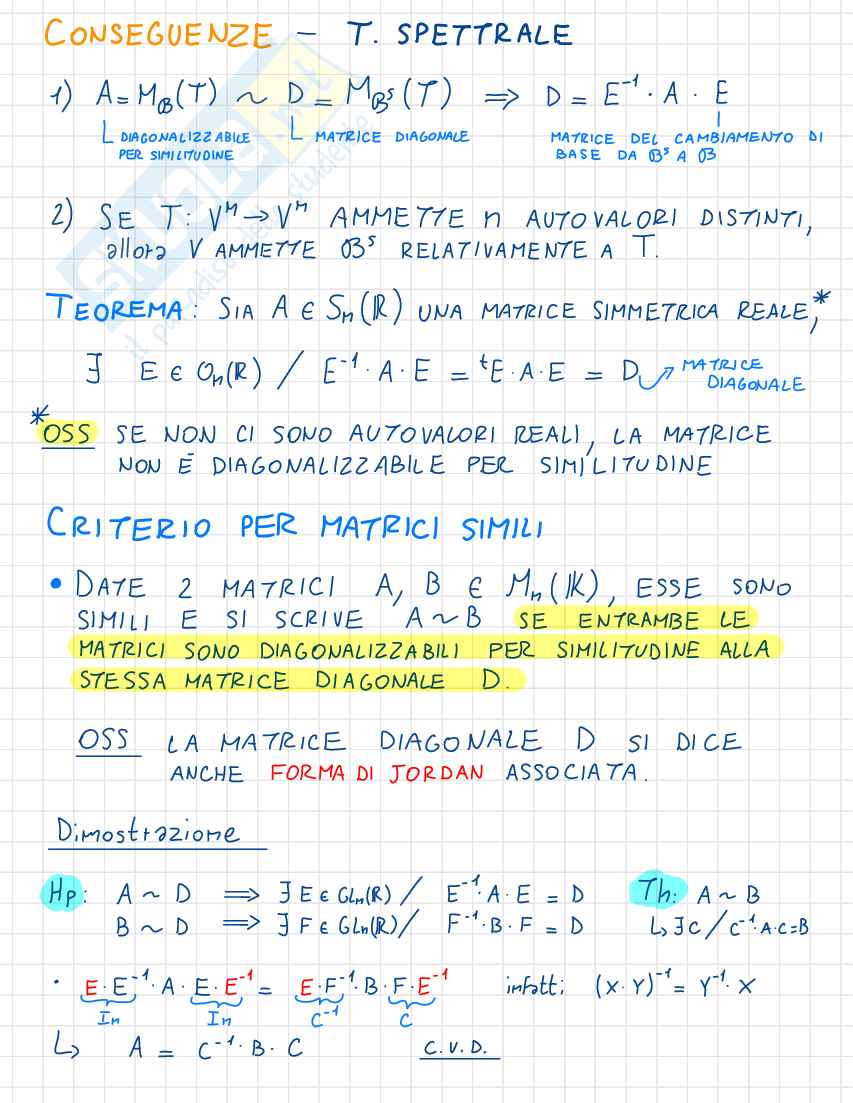 CONSEGUENZE - T. SPETTRALE
1) A = M_B(T) ~ D = M_Bˢ(T) ⇒ D = E⁻¹ · A · E
DIAGONALIZZABILE PER SIMILITUDINE
MATRICE DIAGONALE
MATRICE DEL CAMBIAMENTO DI BASE DA Bˢ A B
2) SE T: Vⁿ → Vⁿ AMMETTE n AUTOVALORI DISTINTI,
allora V AMMETTE Bˢ RELATIVAMENTE A T.
TEOREMA: SIA A ∈ Sₙ(ℝ) UNA MATRICE SIMMETRICA REALE,*
∃ E ∈ Oₙ(ℝ) / E⁻¹ · A · E = ᵗE · A · E = D → MATRICE DIAGONALE
*
OSS SE NON CI SONO AUTOVALORI REALI, LA MATRICE
NON È DIAGONALIZZABILE PER SIMILITUDINE
CRITERIO PER MATRICI SIMILI
• DATE 2 MATRICI A, B ∈ Mₙ(𝕂), ESSE SONO
SIMILI E SI SCRIVE A ~ B SE ENTRAMBE LE
MATRICI SONO DIAGONALIZZABILI PER SIMILITUDINE ALLA
STESSA MATRICE DIAGONALE D.
OSS LA MATRICE DIAGONALE D SI DICE
ANCHE FORMA DI JORDAN ASSOCIATA.
Dimostrazione
Hp: A ~ D ⇒ ∃ E ∈ GLₙ(ℝ) / E⁻¹ · A · E = D Th: A ~ B
B ~ D ⇒ ∃ F ∈ GLₙ(ℝ) / F⁻¹ · B · F = D ↳ ∃ C / C⁻¹ · A · C = B
· E · E⁻¹ · A · E · E⁻¹ = E · F⁻¹ · B · F · E⁻¹ infatti (X · Y)⁻¹ = Y⁻¹ · X
Iₙ Iₙ C⁻¹ C
↳ A = C⁻¹ · B · C C.V.D.
SKUOLA.net
il paradiso dello studente